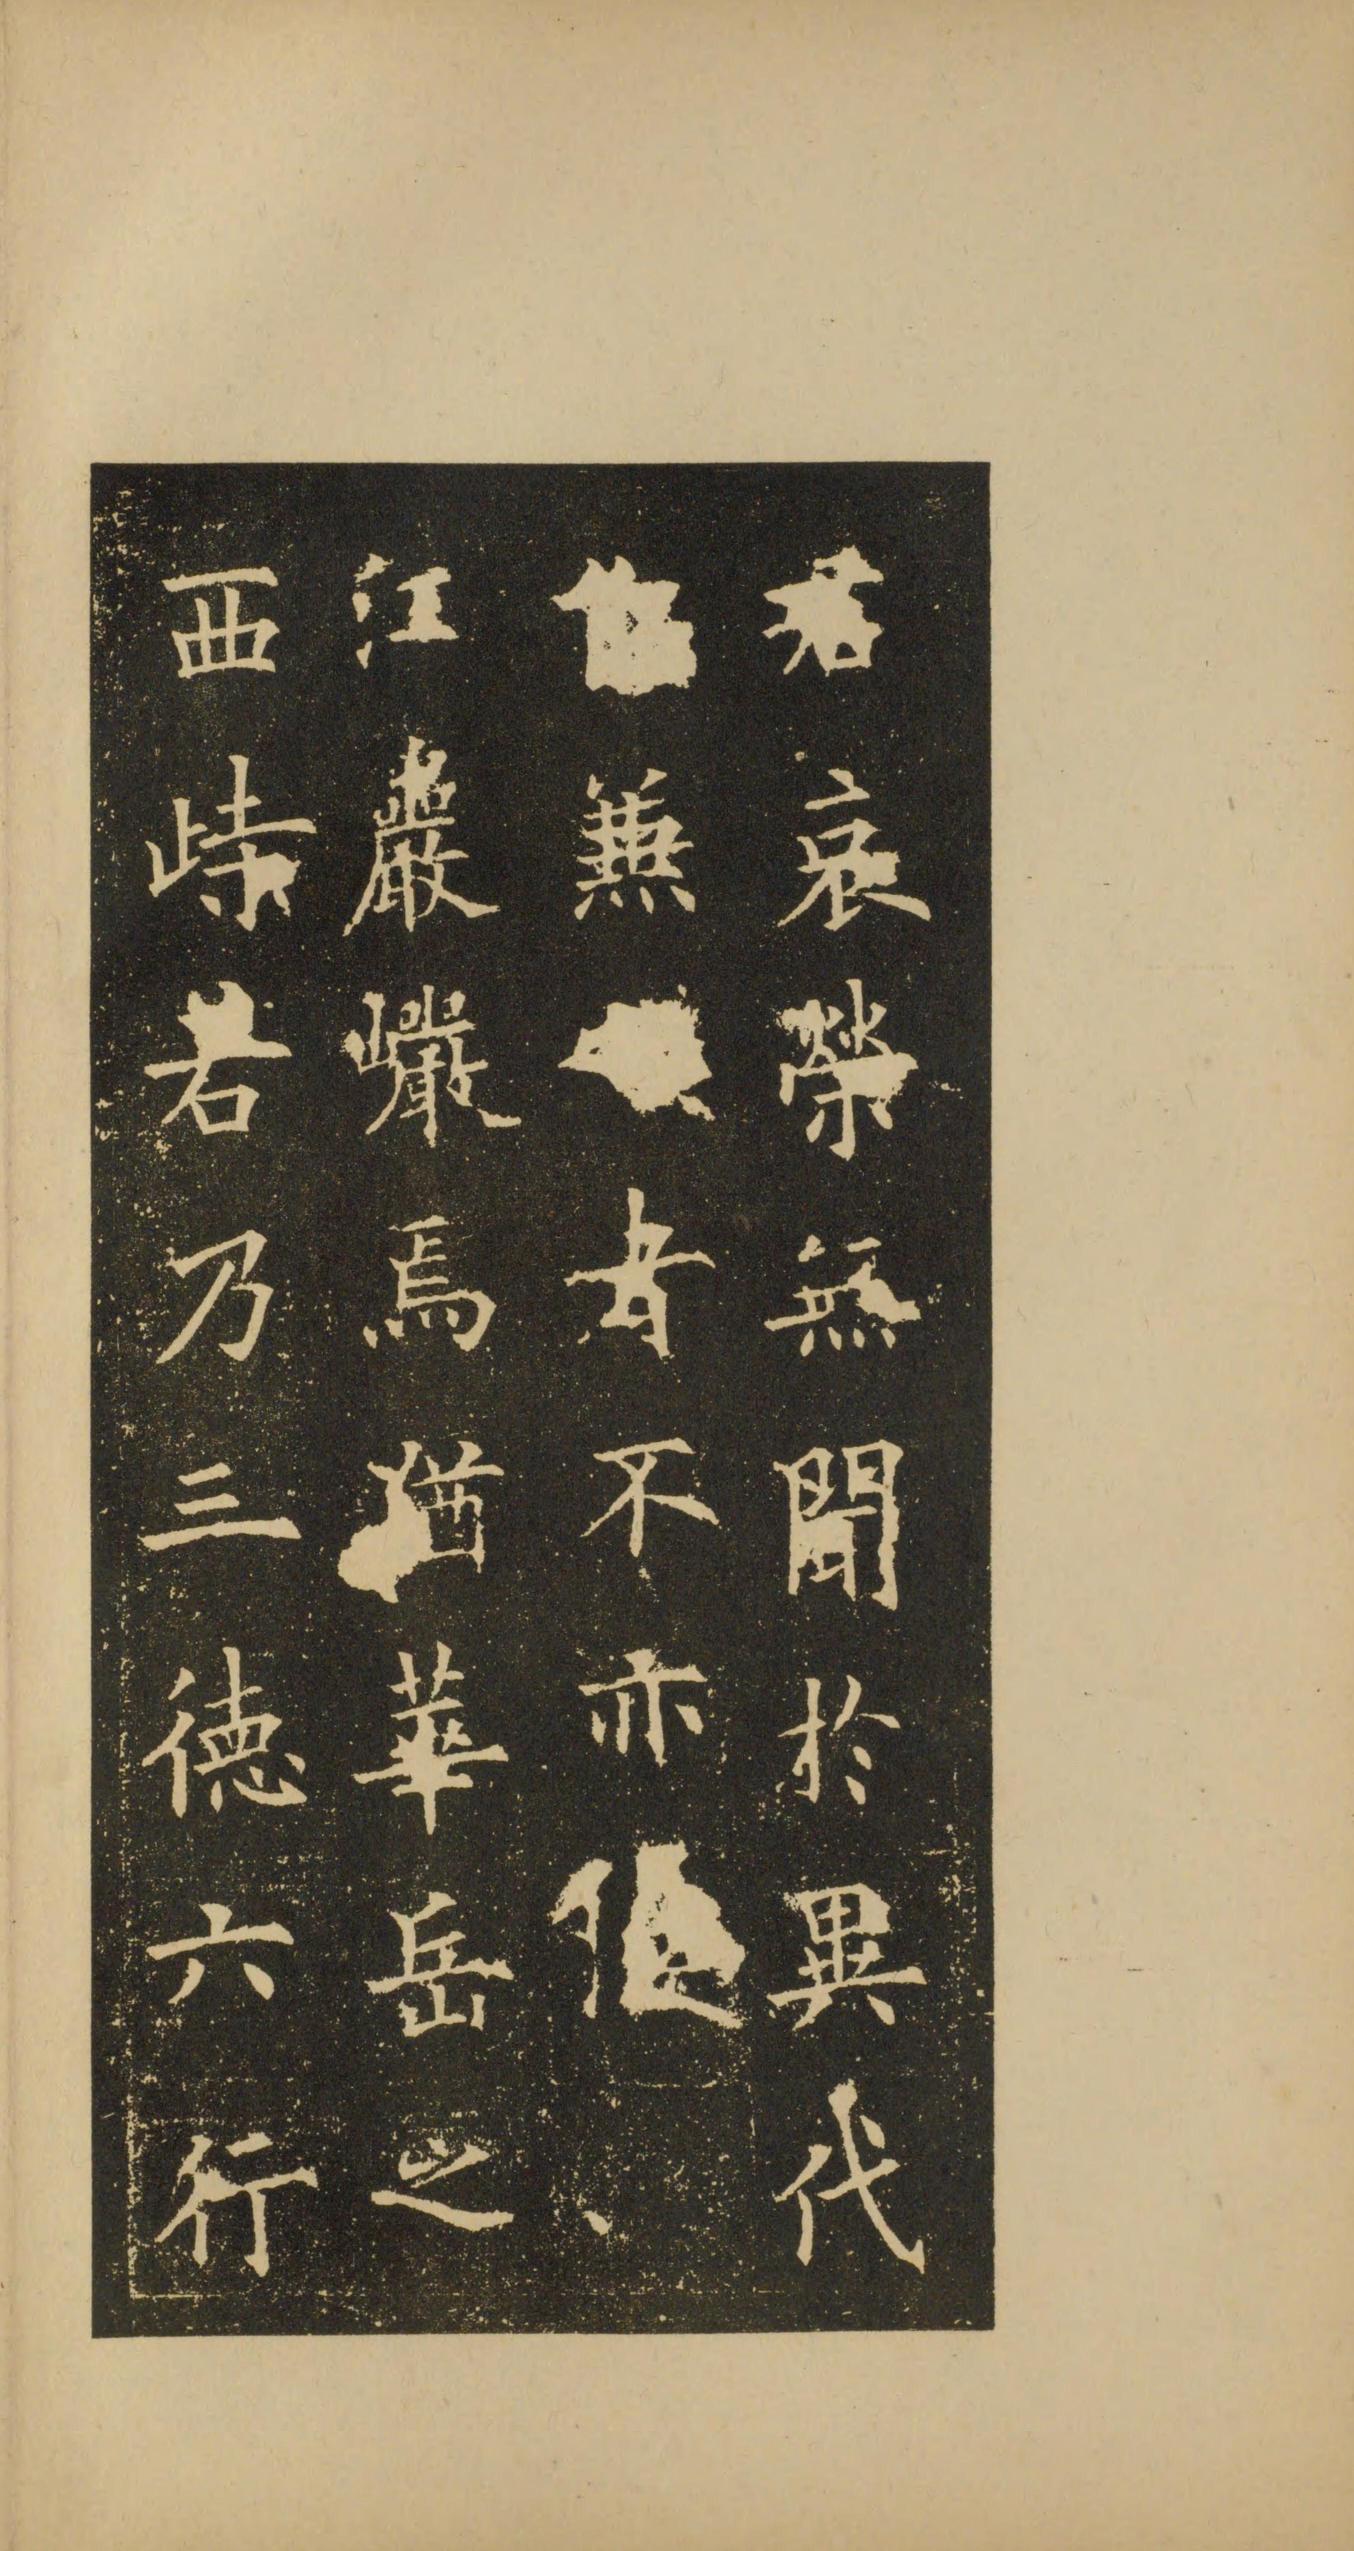 哀榮無聞於異代
兼者不亦
江巖巗焉猶華岳之
西峙若乃三德六行